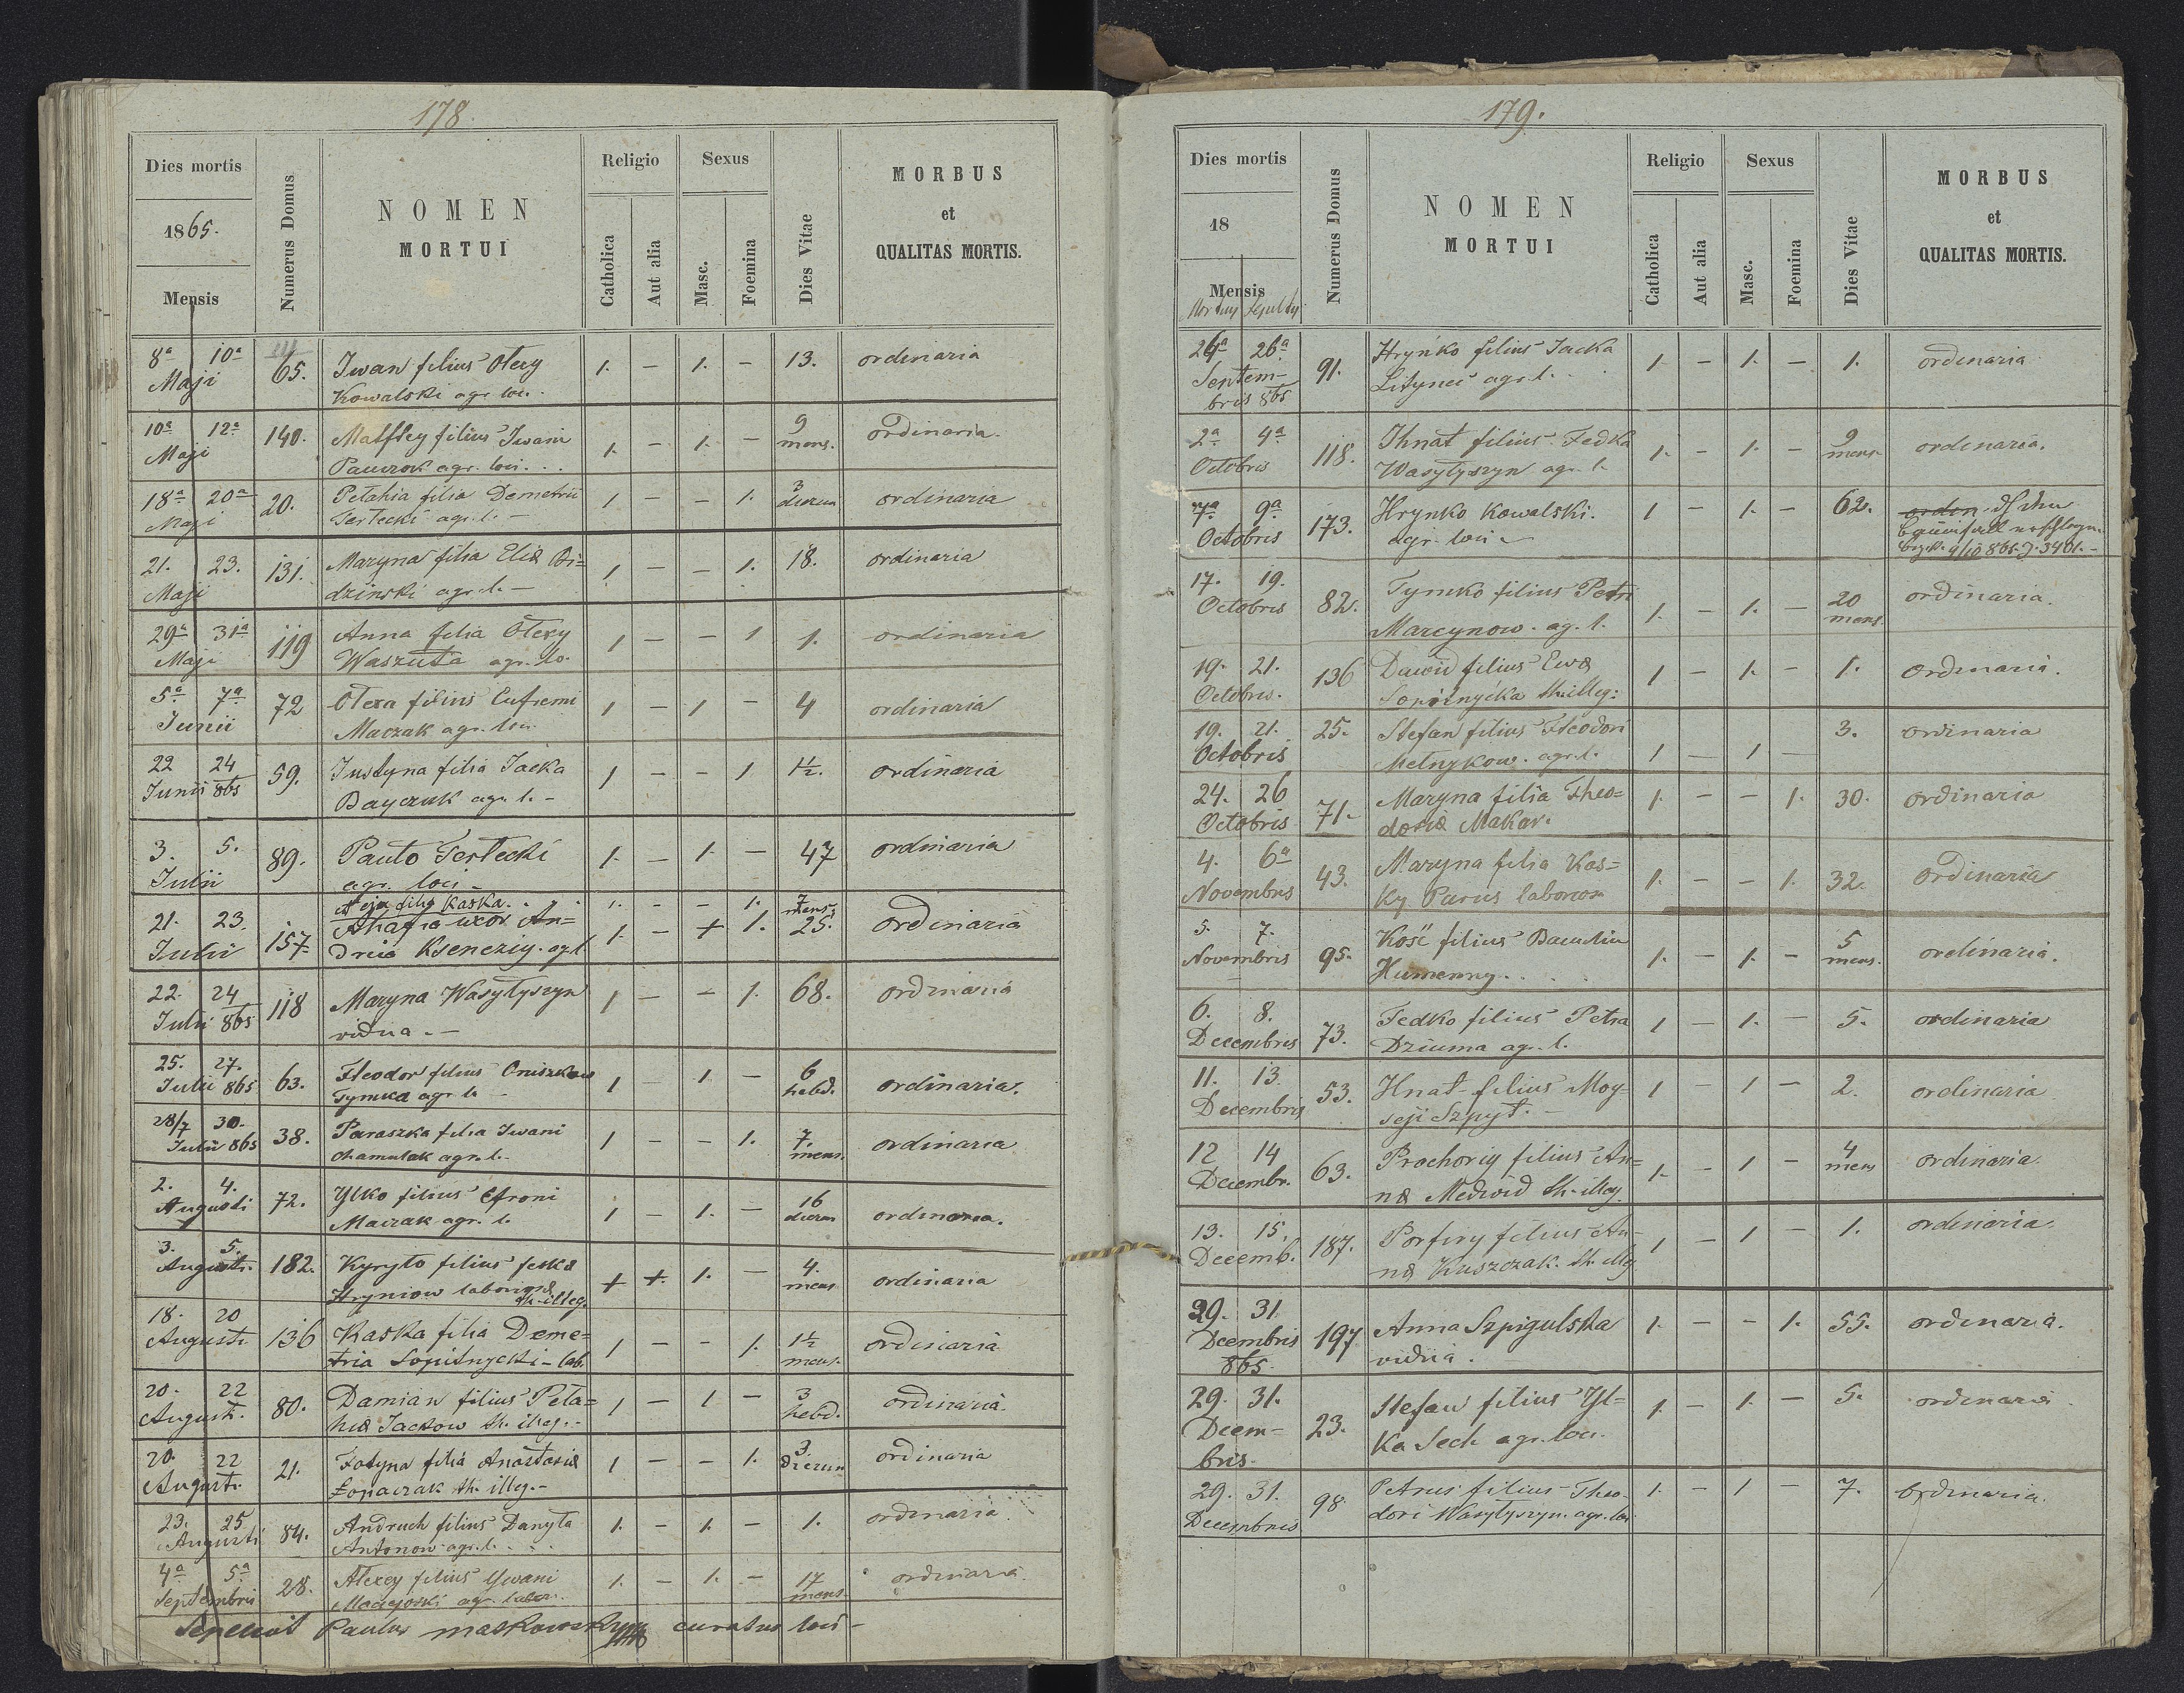 178.
Dies mortis
1865.
Mensis
Numerus Domus
NOMEN
MORTUI
Religio
Catholica
Aut alia
Sexus
Masc.
Foemina
Dies Vitae
MORBUS
et
QUALITAS MORTIS.
8ª 10ª 65. Iwan filius Olexy 1. — 1. — 13. ordinaria
Maji Kowalski agr. loci.
10ª 12ª 140. Matftey filius Iwani 1. — 1. — 9 mens. ordinaria.
Maji agr. loci...
18ª 20ª 20. Pelahia filia Demetrii 1 — — 1. 3 dierum ordinaria
Maji Terlecki agr. l. —
21. 23. 131. Maryna filia Eliæ Bi= 1 — — 1. 18. ordinaria
Maji dzinski agr. l. —
29ª 31ª 119 Anna filia Olexy 1 — — 1 1. ordinaria
Maji Waszuta agr. lo.
5ª 7ª 72 Olexa filius Eufremi 1 — 1 — 4 ordinaria
Junii Maczak agr. loci
22 24 59. Justyna filia Jacka 1 — — 1 1½. ordinaria
Junii 865 Bayczuk agr. l. —
3. 5. 89. Pauło Terlecki 1. — 1. — 47 ordinaria
Julii agr. loci —
et eju filia Kaska. 1. — — 1. 7 mens.
21. 23. 157 Ahafia uxor An= 1. — + 1. 25. ordinaria
Julii dreia Ksenezig. agr l
22. 24 118 Maryna Wasyłyszyn 1 — — 1. 68. ordinaria
Julii 865 vidua. —
25. 27. 63. Fteodor filius Oniszkow 1 — 1 — 6 hebd. ordinaria.
Julii 865 Tymka agr l. —
28/7 30. 38. Paraszka filia Iwani 1 — — 1. 7. mens. ordinaria
Julii 865 Chamulak agr. l. —
2. 4. 72. Ylko filius Efroni 1 — 1. — 16 dierum ordinaria.
Augusti Maczak agr. l.
3. 5. 182. Kyryło filius feskæ + +. 1. — 4. mens ordinaria
Augusti. Hryniow th. illeg.
18. 20 136 Kaska filia Deme= 1 — — 1. 1½ mens. ordinaria
Augusti tria Sopilnycki — lab.
20. 22 80. Damian filius Pela= 1 — 1 — 3 hebd. ordinaria.
August. hiæ Jackow th. illeg. —
20. 22 21. Fotyna filia Anastasiæ 1 — — 1. 3. dierum ordinaria
August. Łopaczak th. illeg. —
23. 25 84. Andruch filius Danyła 1. — 1. — 1. ordinaria
Augusti Antonow agr. l. . .
4ª 5ª 28. Alexey filius Ywani 1. — 1. — 17 mens. ordinaria.
Septembris agr. labor.
Sepelivit Paulus curatus loci —
179.
Dies mortis
18
Mensis
Mortuy Sepulty
Numerus Domus
NOMEN
MORTUI
Religio
Catholica
Aut alia
Sexus
Masc.
Foemina
Dies Vitae
MORBUS
et
QUALITAS MORTIS.
24ª 26ª 91. Hryńko filius Jacka 1. — 1. — 1. ordinaria
Septem- Lityneć agr. l.
bris 865
2ª 4ª 118. Ihnat filius Fedka 1. — 1. — 9 mens. ordinaria.
Octobris Wasyłyszyn agr. l.
7ª 9ª 173. Hrynko Kowalski. 1 — 1. — 62. ordin.
Octobris agr. loci —
17. 19. 82. Tymko filius Petri 1. — 1. — 20 mens. ordinaria.
Octobris Marcynow. ag. l.
19. 21. 136 Dawid filius Ewæ 1 — 1. — 1. ordinaria.
Octobris. Sopilnycka th. illeg:
19. 21. 25. Stefan filius Fteodori 1 — 1 — 3. ordinaria
Octobris Melnykow. agr. l.
24. 26 71. Maryna filia Theo= 1. — — 1. 30. ordinaria
Octobris doriæ Makar.
4. 6ª 43. Maryna filia Kas= 1. — — 1. 32. ordinaria
Novembris ky Parus laborom
5. 7. 95. Kość filius 1. — 1. — 5 mens. ordinaria.
Novembris Humenny. . .
6. 8. 73. Fedko filius Petra 1 — 1. — 5. ordinaria
Decembris Dziuma agr. l.
11. 13. 53. Hnat filius Moy- 1 — 1 — 2. ordinaria
Decembris seji Szpyt. —
12 14 63. Prochoriy filius An= 1. — 1 — 4 mens ordinaria.
Decembr. næ Medwid th. illeg.
13. 15. 187. Porfiry filius An- 1 — 1 — 1. ordinaria.
Decemb. næ Kuszczak. th. illeg
29. 31. 197 Anna Szpigulska 1. — — 1. 55. ordinaria.
Decembris vidua.
865.
29. 31. 23. Stefan filius Yl= 1. — 1. — 5. ordinaria.
Decem- ka Sech agr. loci.
bris.
29. 31. 98 Petrus filius Theo- 1. — 1 — 7. ordinaria.
Decembris dori Wasyłyszyn. agr. loi